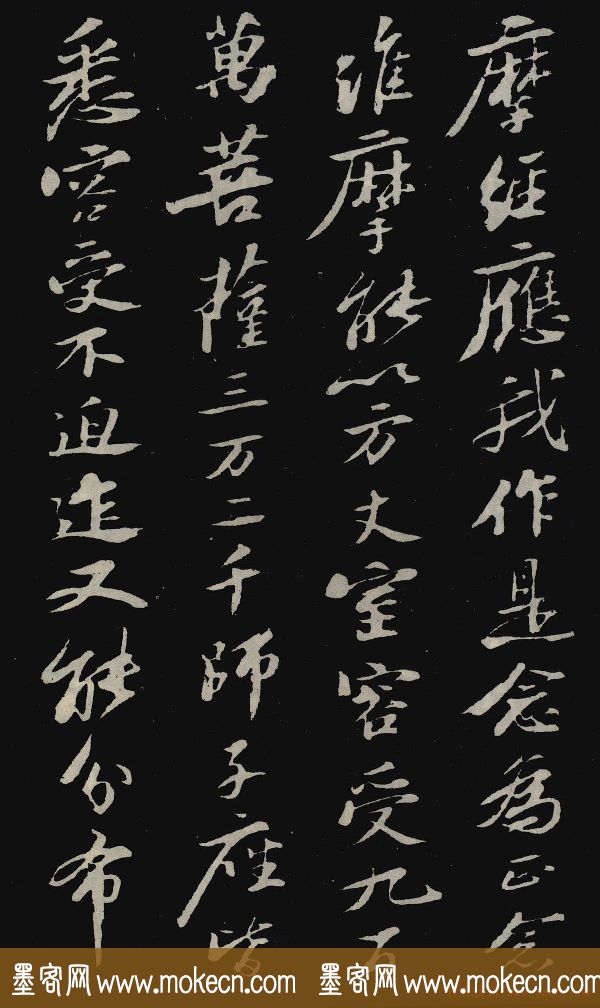 摩經應我作是念為正念
維摩能以方丈室容受九百
萬菩薩三万二千師子座皆
悉容受不迫迮又能分布
墨客网 www.mokecn.com 墨客网 www.mokecn.com